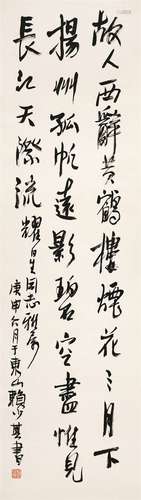 故人西辭黃鶴樓煙花三月下
揚州孤帆遠影碧空盡惟見
長江天際流耀星同志雅屬
庚申六月于東山賴少其書